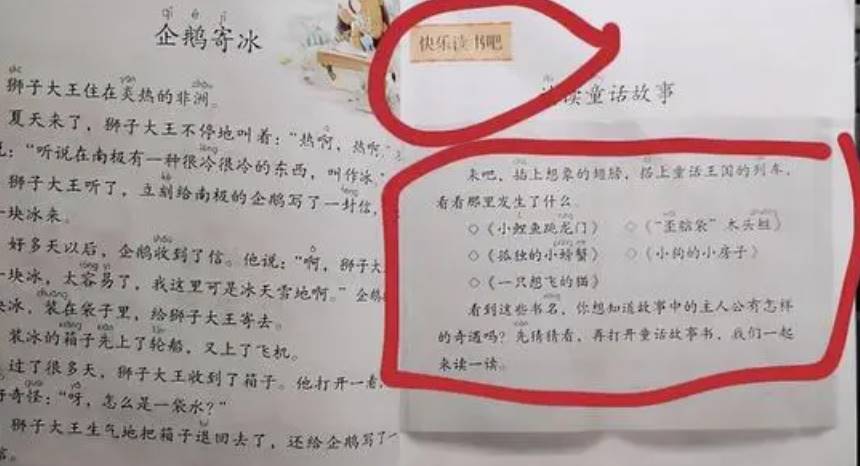 企鹅寄冰
狮子大王住在炎热的非洲。
夏天来了，狮子大王不停地叫着：“热啊，热啊。”
：“听说在南极有一种很冷很冷的东西，叫作冰。”
狮子大王听了，立刻给南极的企鹅写了一封信，
一块冰来。
好多天以后，企鹅收到了信。他说：“啊，狮子大
一块冰，太容易了，我这里可是冰天雪地啊。”企鹅
冰，装在袋子里，给狮子大王寄去。
装冰的箱子先上了轮船，又上了飞机。
过了很多天，狮子大王收到了箱子。他打开一看，
奇怪：“呀，怎么是一袋水？”
狮子大王生气地把箱子退回去了，还给企鹅写了一
信。
快乐读书吧
读读童话故事
来吧，插上想象的翅膀，搭上童话王国的列车，
看看那里发生了什么。
◇《小鲤鱼跳龙门》 ◇《“歪脑袋”木头桩》
◇《孤独的小螃蟹》 ◇《小狗的小房子》
◇《一只想飞的猫》
看到这些书名，你想知道故事中的主人公有怎样
的奇遇吗？先猜猜看，再打开童话故事书，我们一起
来读一读。